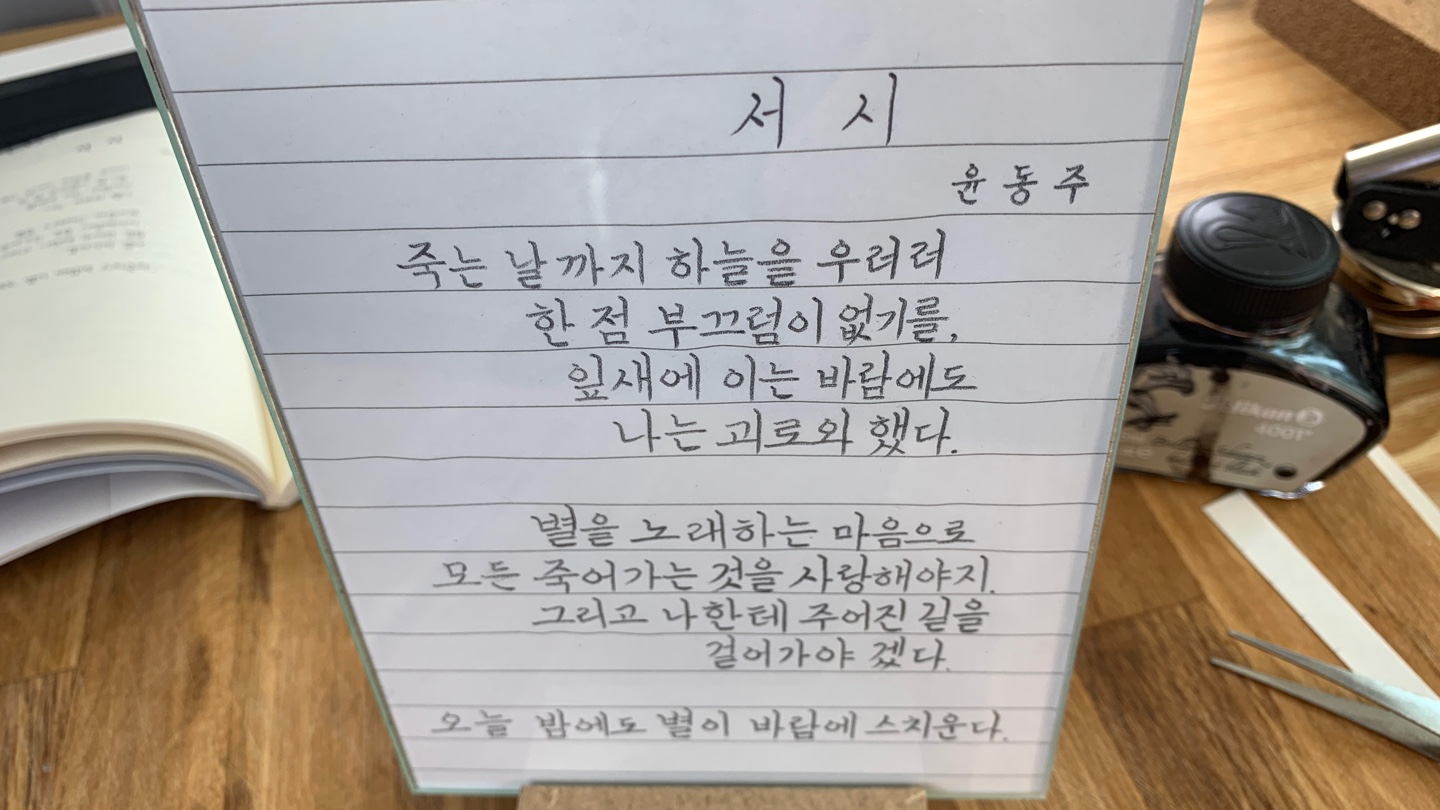 서 시
윤 동 주
죽는 날까지 하늘을 우러러
한 점 부끄럼이 없기를,
잎새에 이는 바람에도
나는 괴로와 했다.
별을 노래하는 마음으로
모든 죽어가는 것을 사랑해야지.
그리고 나한테 주어진 길을
걸어가야 겠다.
오늘 밤에도 별이 바람에 스치운다.
Pelikan
4001